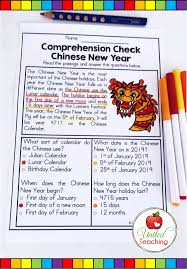 Comprehension Check
Chinese New Year
Read the passage and answer the questions below.
The Chinese New Year is the most
important of the Chinese holidays.
Chinese dates are based on the
Lunar calendar. The holiday begins on
the first day of a new moon and ends
15 days later with the Lantern Festival.
What sort of calendar do
the Chinese use?
Julian Calendar
Lunar Calendar
Birthday Calendar
What date is the Chinese
New Year is on in 2019?
1st of January 2019
5th of February 2019
2nd of January 2019
When does the Chinese
New Year begin?
First day of January
First day of a new moon
First day of December
How long does the Chinese
New Year holidays last?
4715 years
15 days
12 months
United
Teaching